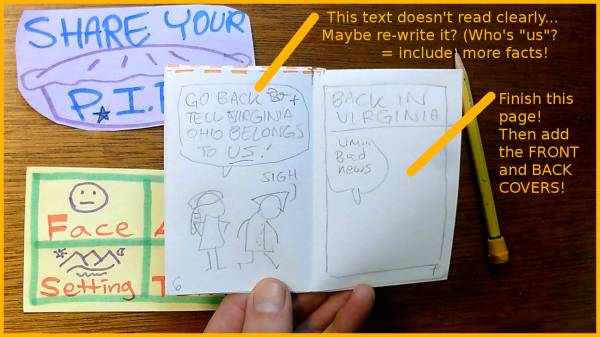 SHARE YOUR
P.I.
Face
Setting
GO BACK
TELL VIRGINIA
OHIO BELONGS
TO US!
SIGH
6
BACK IN
VIRGINIA
Umm..
Bad
news
7
This text doesn't read clearly...
Maybe re-write it? (Who's "us"?
= include more facts!
Finish this
page!
Then add
the FRONT
and BACK
COVERS!